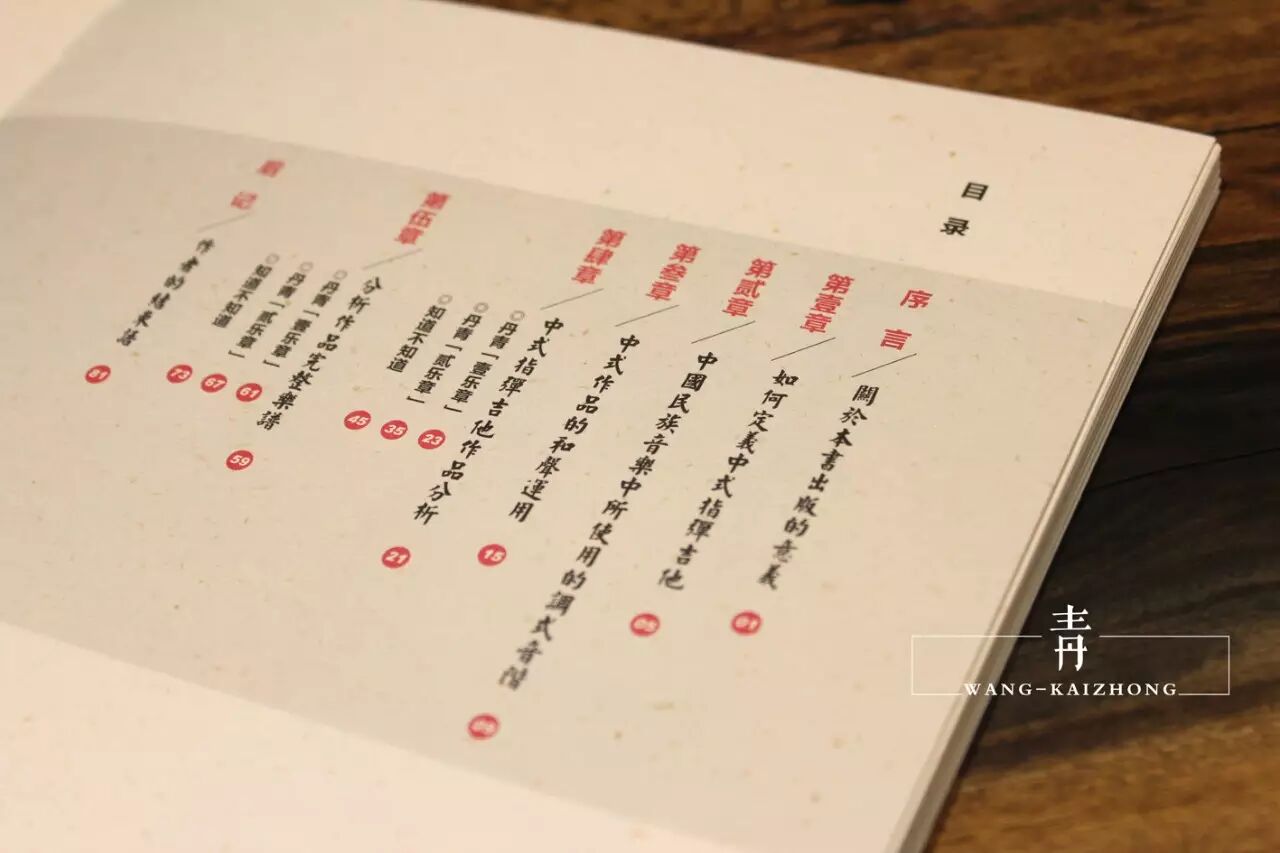 目录
序言
關於本書出版的意義
第壹章
如何定義中式指彈吉他
01
第贰章
中國民族音樂中所使用的調式音階
05
第叄章
中式作品的和聲運用
第肆章
中式指彈吉他作品分析
15
◎丹青「壹乐章」
23
◎丹青「贰乐章」
35
◎知道不知道
45
21
第伍章
分析作品完整樂譜
59
◎丹青「壹乐章」
61
◎丹青「贰乐章」
67
◎知道不知道
73
記
作者的結束語
81
青
WANG-KAIZHONG